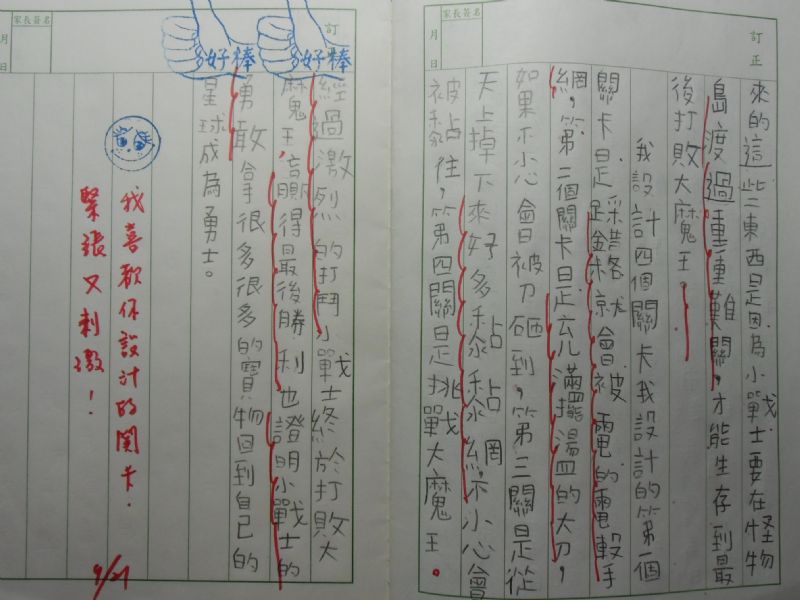 訂正
家長簽名
月 日
來的這些東西是因為小戰士要在怪物
島渡過重重難關,才能生存到最
後打敗大魔王。
我設計四個關卡我設計的第一個
關卡是踩錯格就會被電的電擊手
網,第二個關卡是充滿擺盪的大刀,
如果不小心會被刀砸到,第三關是從
天上掉下來好多黏黏網,不小心會
被黏住,第四關是挑戰大魔王。
訂
家長簽名
月 日
好棒
好棒
經過激烈的打鬥小戰士終於打敗大
魔王,贏得最後勝利也證明小戰士的
勇敢拿很多很多的寶物回到自己的
星球成為勇士。
我喜歡你設計的關卡.
緊張又刺激!
9/21